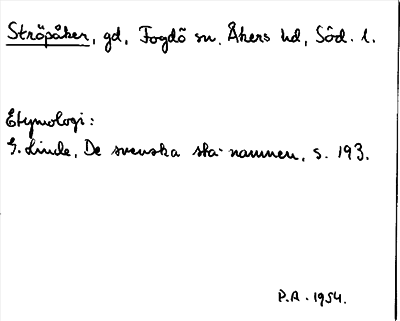 Ströpåker, gd, Fogdö sn, Åkers hd, Söd. l.
Etymologi:
G. Linde, De svenska sta-namnen, s. 193.
P.A. 1954.